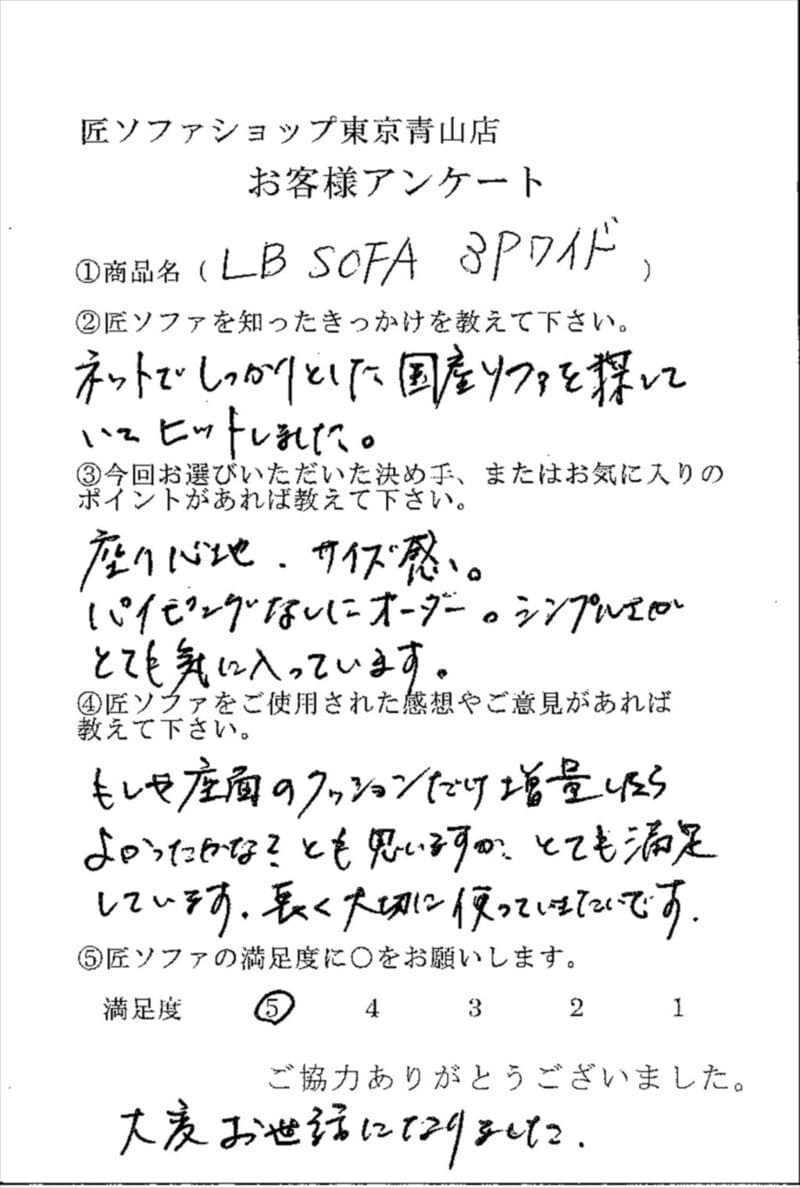 匠ソファショップ東京青山店
お客様アンケート
①商品名（LB SOFA 3Pワイド）
②匠ソファを知ったきっかけを教えて下さい。
ネットでしっかりとした国産ソファを探して
いてヒットしました。
③今回お選びいただいた決め手、またはお気に入りの
ポイントがあれば教えて下さい。
座り心地、サイズ感い。
パイピングなしにオーダー。シンプルさが
とても気に入っています。
④匠ソファをご使用された感想やご意見があれば
教えて下さい。
もしや座面のクッションだけ増量したら
よかったかな？とも思いますが、とても満足
しています。長く大切に使っていきたいです。
⑤匠ソファの満足度に〇をお願いします。
満足度 5 4 3 2 1
ご協力ありがとうございました。
大変お世話になりました。